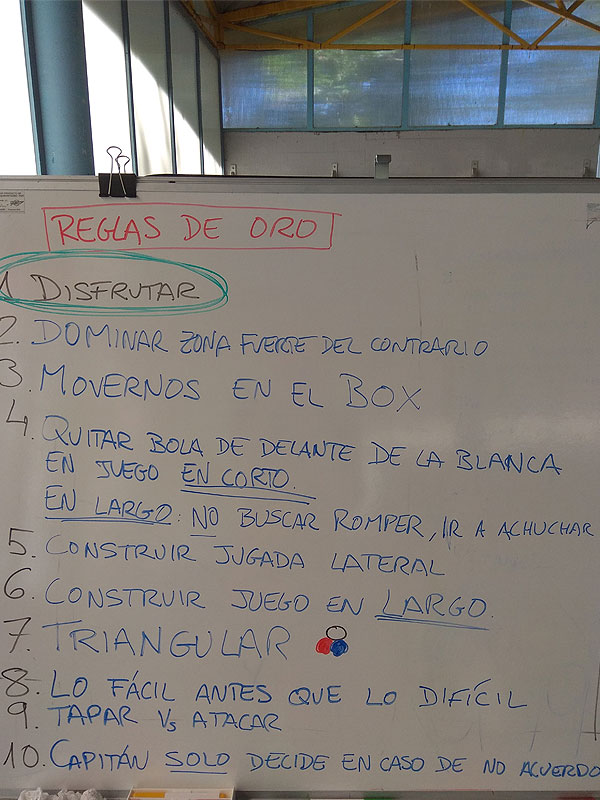 REGLAS DE ORO
1 DISFRUTAR
2. DOMINAR ZONA FUERTE DEL CONTRARIO
3. MOVERNOS EN EL BOX
4. QUITAR BOLA DE DELANTE DE LA BLANCA
EN JUEGO EN CORTO.
EN LARGO: NO BUSCAR ROMPER, IR A ACHUCHAR
5. CONSTRUIR JUGADA LATERAL
6. CONSTRUIR JUEGO EN LARGO.
7. TRIANGULAR
8. LO FÁCIL ANTES QUE LO DIFÍCIL
9. TAPAR Vs ATACAR
10. CAPITÁN SOLO DECIDE EN CASO DE NO ACUERDO